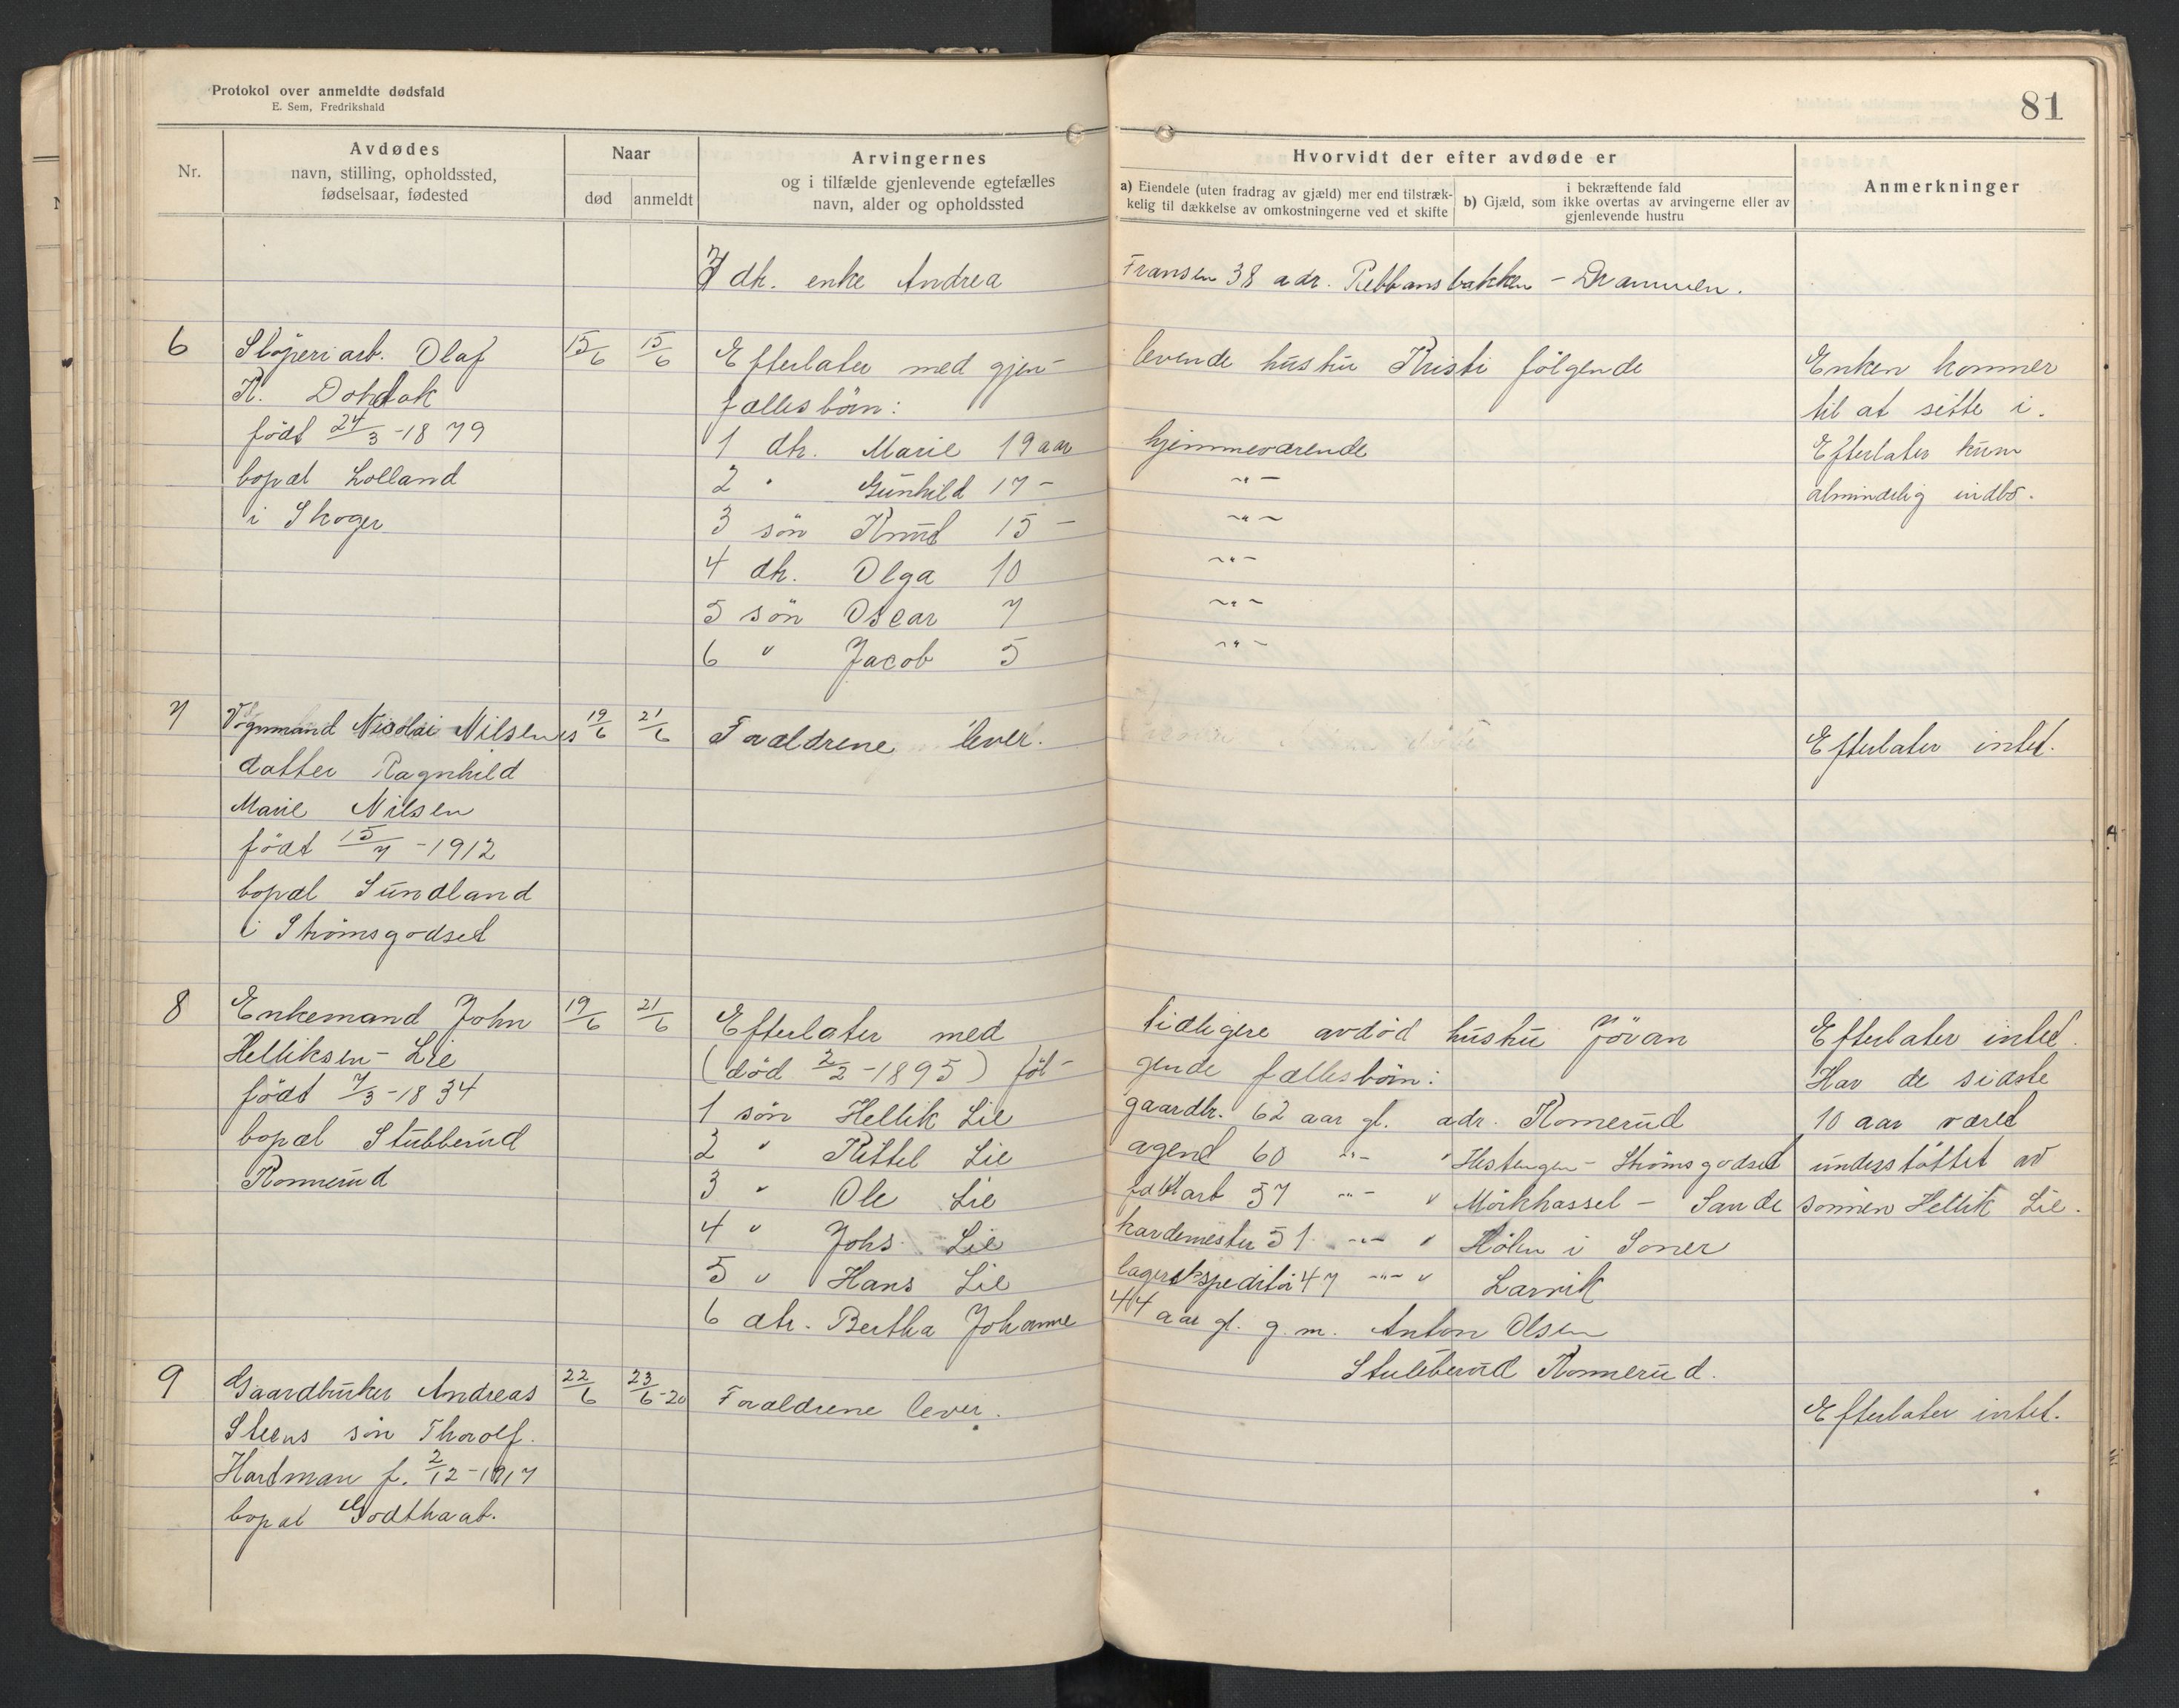 Protokol over anmeldte dødsfald
E. Sem, Fredrikshald
81
Nr.
Avdødes
navn, stilling, opholdssted,
fødselsaar, fødested
Naar
død
anmeldt
Arvingernes
og i tilfælde gjenlevende egtefælles
navn, alder og opholdssted
Hvorvidt der efter avdøde er
a) Eiendele (uten fradrag av gjæld) mer end tilstræk-
kelig til dækkelse av omkostningerne ved et skifte
i bekræftende fald
b) Gjæld, som ikke overtas av arvingerne eller av
gjenlevende hustru
Anmerkninger
7 dtr. enke Andrea Fransen 38 adr. - Drammen.
6 Sloperiarb. Olaf 15/6 15/6 Efterlater med gjen- levende hustru Kristi følgende Enken kommer
K. fællesbørn: til at sitte i.
født 24/3-1879 1 dtr. Marie 19 aar hjemmeværende Efterlater kun
bopæl Lolland 2 " Gunhild 17 - -"- almindelig indbo.
i Skoger 3 søn Knut 15 - -"-
4 dtr. Olga 10 -"-
5 søn Oscar 7 -"-
6 " Jacob 5 -"-
7 Vognmand Nicolai Nilsens 19/6 21/6 Forældrene lever. Efterlater intet.
datter Ragnhild
Marie Nilsen
født 15/7-1912
bopæl Sundland
i Strømsgodset
8 Enkemand John 19/6 21/6 Efterlater med tidligere avdød hustru Jøran Efterlater intet.
Helliksen-Lie (død 2/2-1895) føl- gende fællesbørn: Har de sidste
født 7/3-1834 1 søn Hellik Lie gaardbr. 62 aar gl. adr. Konnerud 10 aar været
bopæl Stubberud 2 " Kittel Lie agent 60 -"- " Hestengen - Strømsgodset understøttet av
Konnerud 3 " Ole Lie fabkarb 57 -"- " Mørkhassel - Sande sønnen Hellik Lie.
4 " Johs. Lie kardemester 51 -"- " Hølen i Soner
5 " Hans Lie lagerekspeditør 47 -"- " Larvik
6 dtr. Bertha Johanne 44 aar gl. g. m. Anton Olsen
Stubberud Konnerud.
9 Gaardbruker Andreas 22/6 23/6-20 Forældrene lever. Efterlater intet.
Steens søn Thorolf
Hartman f. 2/12-1917
bopæl Godthaab.